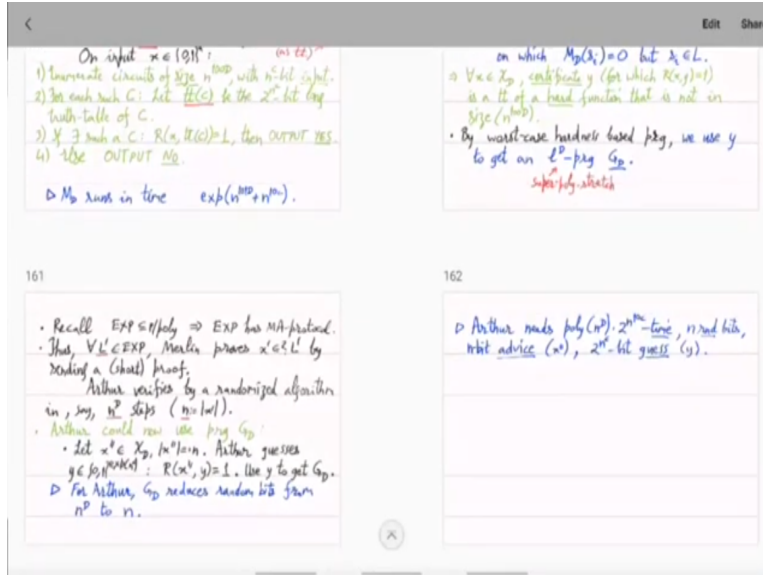 Edit Shar
On input x ∈ {0,1}ⁿ :
(as tt)
1) Enumerate circuits of size n^100D, with n^c-bit input.
2) For each such C: Let tt(C) be the 2^n^c-bit long
truth-table of C.
3) If ∃ such a C: R(x, tt(C))=1, then OUTPUT YES.
4) Else OUTPUT NO.
▷ M_D runs in time exp(n^100D + n^10c).
on which M_D(x_i)=0 but x_i ∈ L.
⇒ ∀x ∈ X_D, certificate y (for which R(x,y)=1)
is a tt of a hard function that is not in
size(n^100D).
• By worst-case hardness based prg, we use y
to get an l^D-prg G_D.
super-poly-stretch
161
162
• Recall EXP ⊆ P/poly ⇒ EXP has MA-protocol.
• Thus, ∀L' ∈ EXP, Merlin proves x' ∈? L' by
sending a (short) proof.
Arthur verifies by a randomized algorithm
in, say, n^D steps (n:=|x'|).
• Arthur could now use prg G_D:
• Let x* ∈ X_D, |x*|=:n. Arthur guesses
R(x*, y)=1. Use y to get G_D.
▷ For Arthur, G_D reduces random bits from
n^D to n.
▷ Arthur needs poly(n^D)·2^n^10c-time, n rnd bits,
n-bit advice (x*), 2^n^c-bit guess (y).